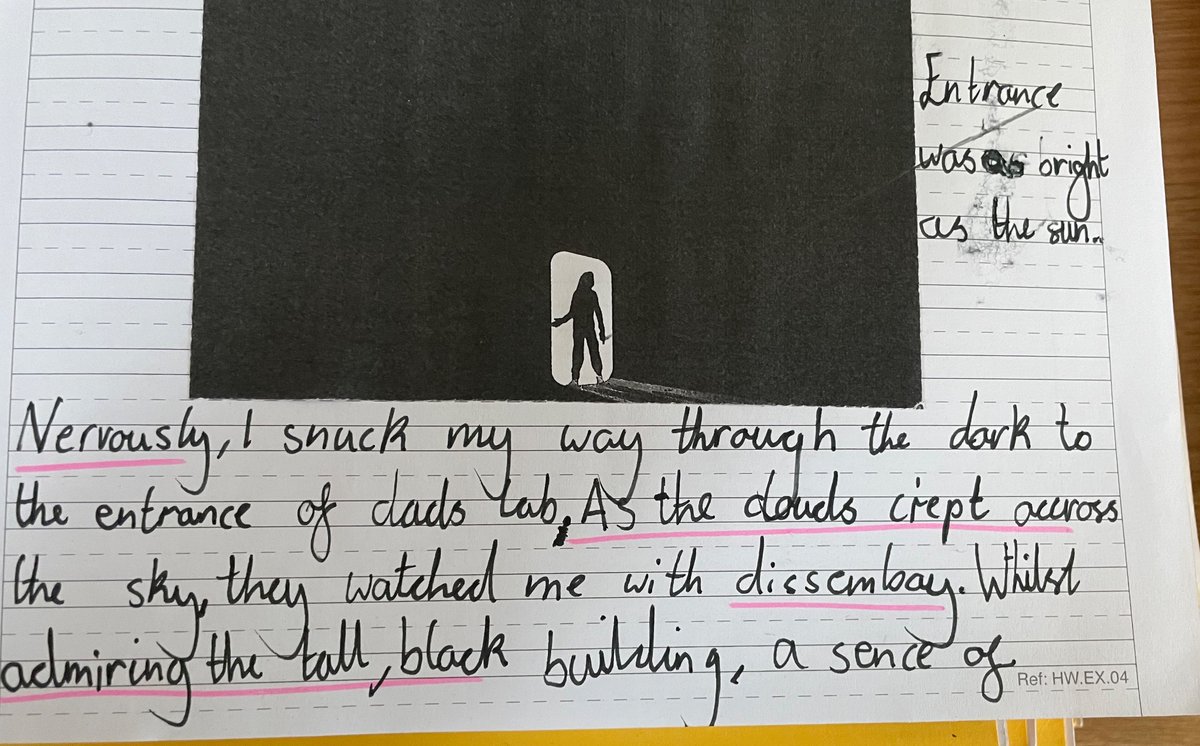 Entrance
was as bright
as the sun.
Nervously, I snuck my way through the dark to
the entrance of dads lab. As the clouds crept accross
the sky, they watched me with dissembay. Whilst
admiring the tall, black building, a sence of
Ref: HW.EX.04